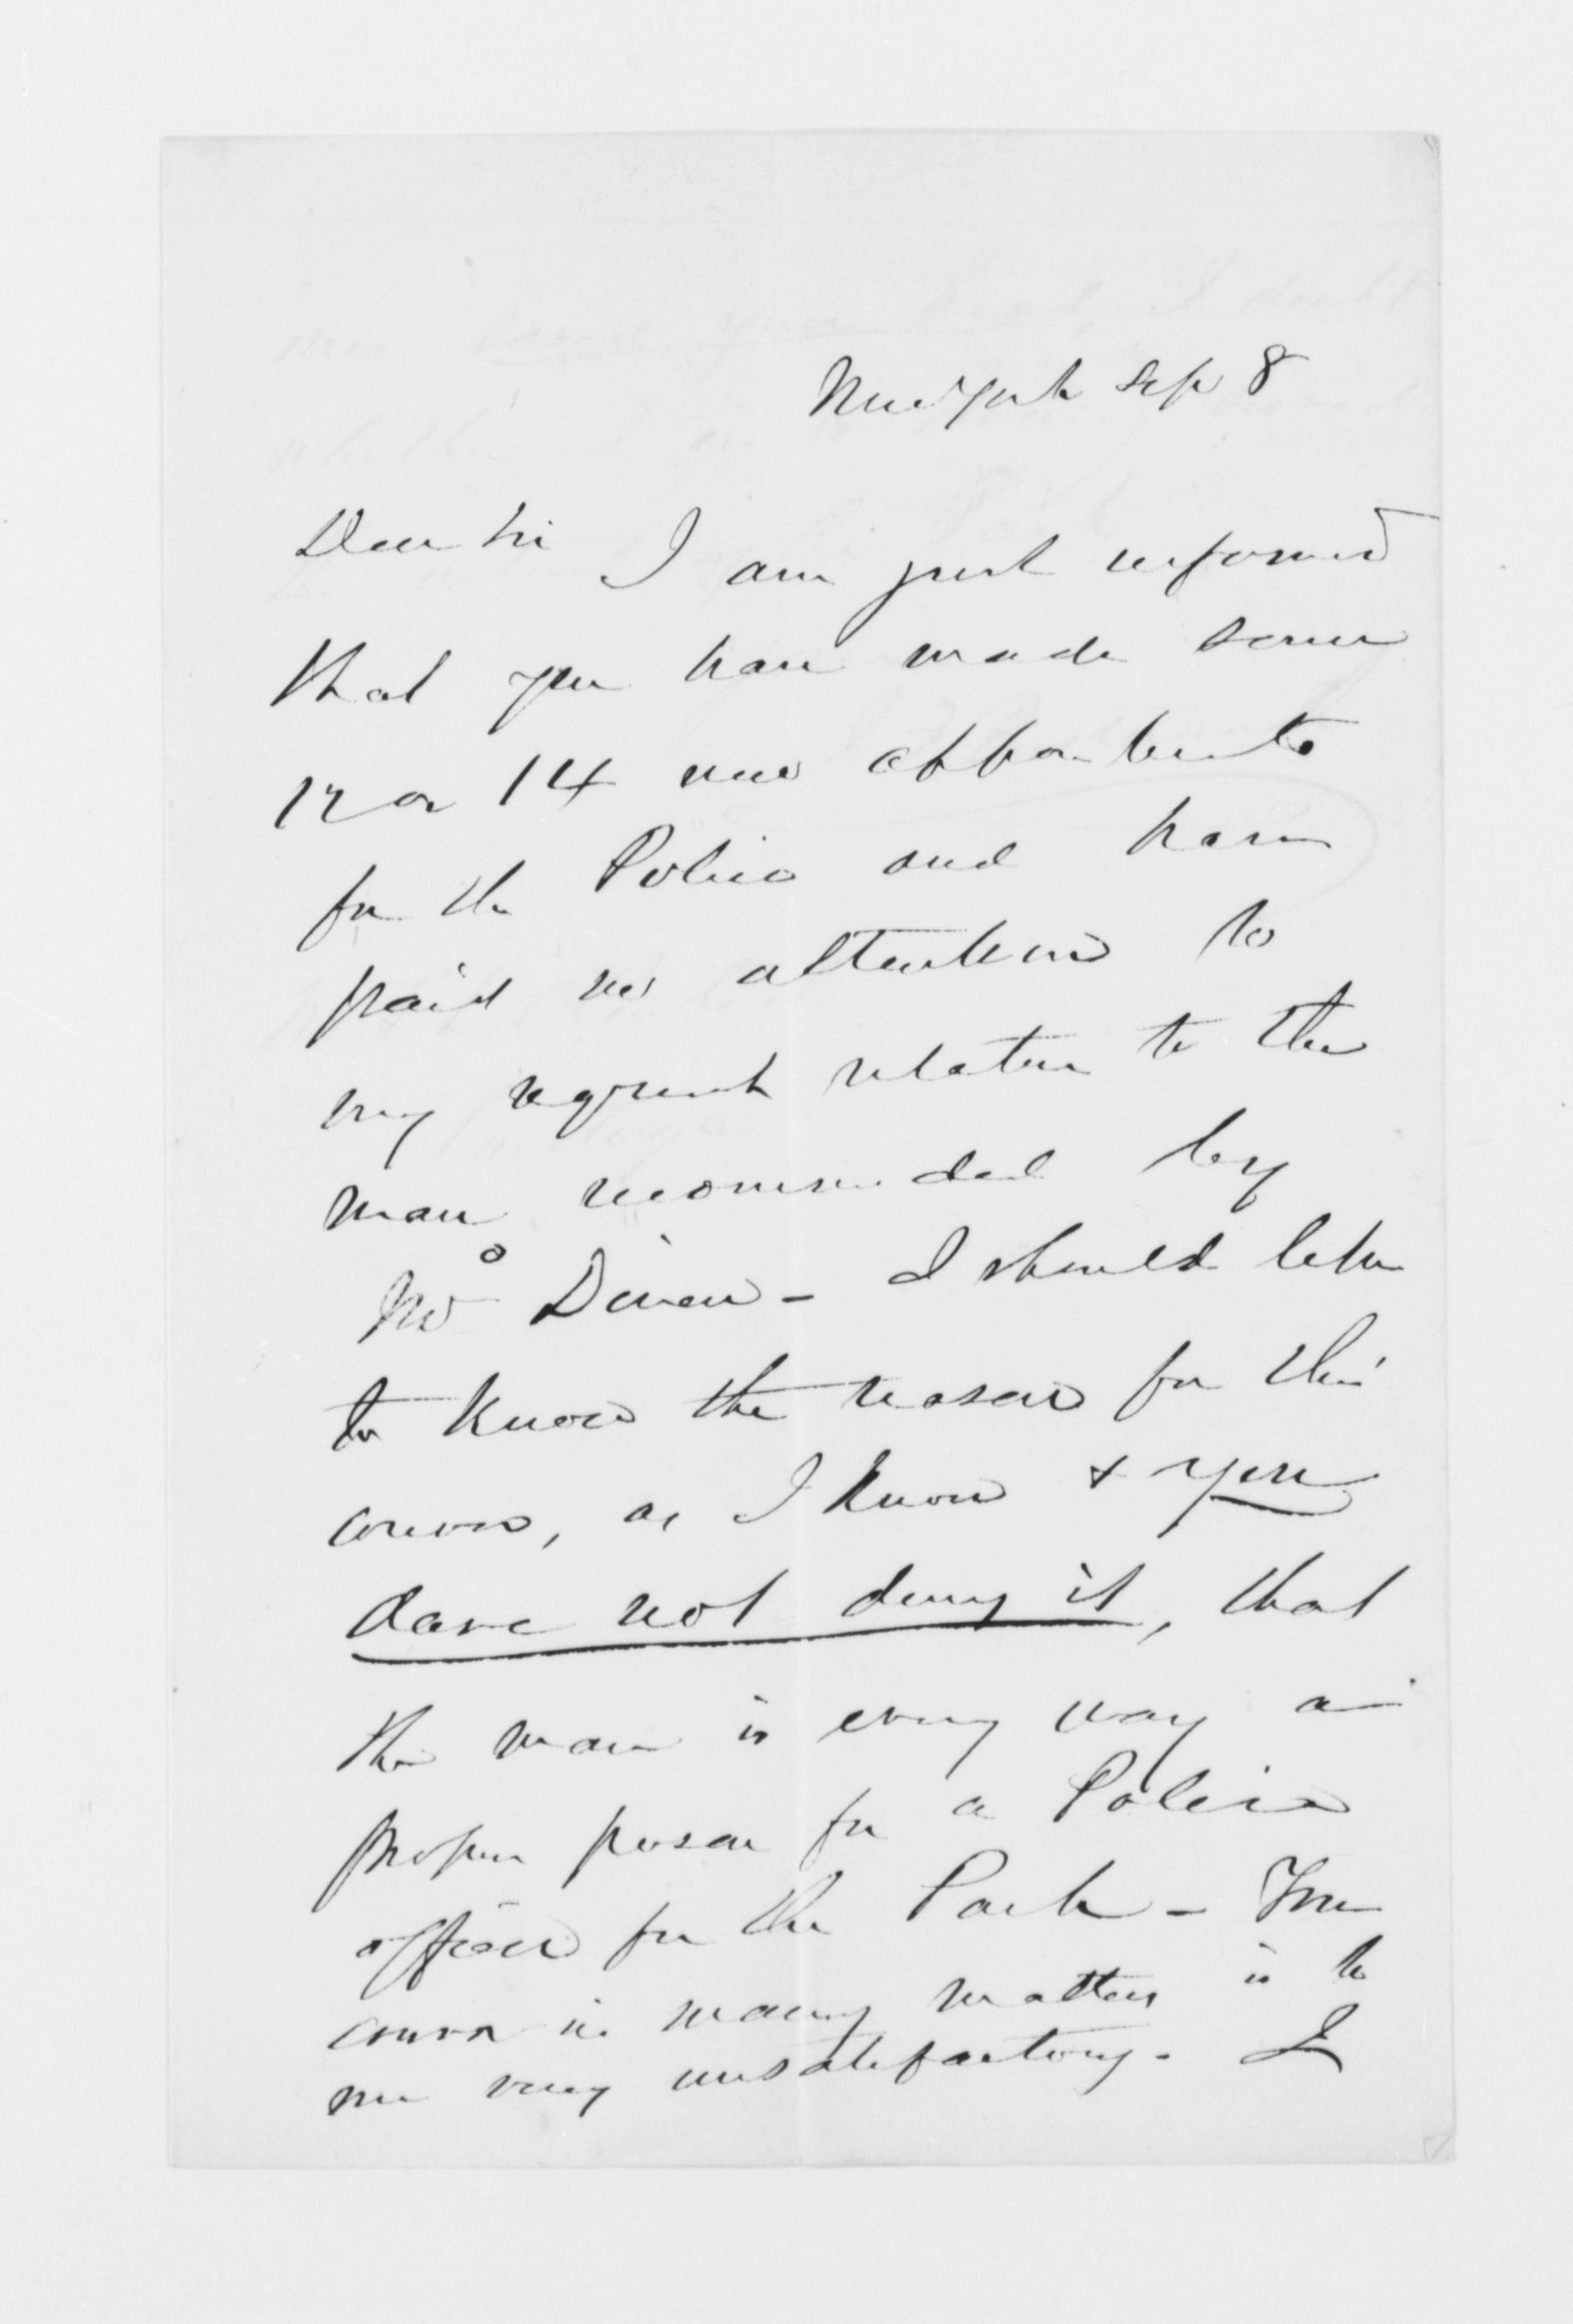 New York Sep 8
Dear Sir I am just informed
that you have made some
12 or 14 new appointments
for the Police and have
paid no attention to
my request relative to the
man recommended by
Mr Dinan - I should like
to know the reason for this
course, as I know & you
dare not deny it, that
this man is every way a
proper person for a Police
officer for the Park - Your
course in many matters is to
me very unsatisfactory. I